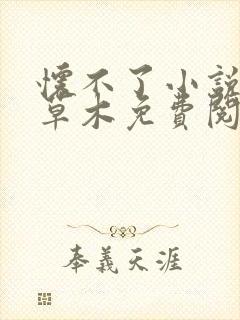 懷不了小說
草木免費閱
奉義天涯